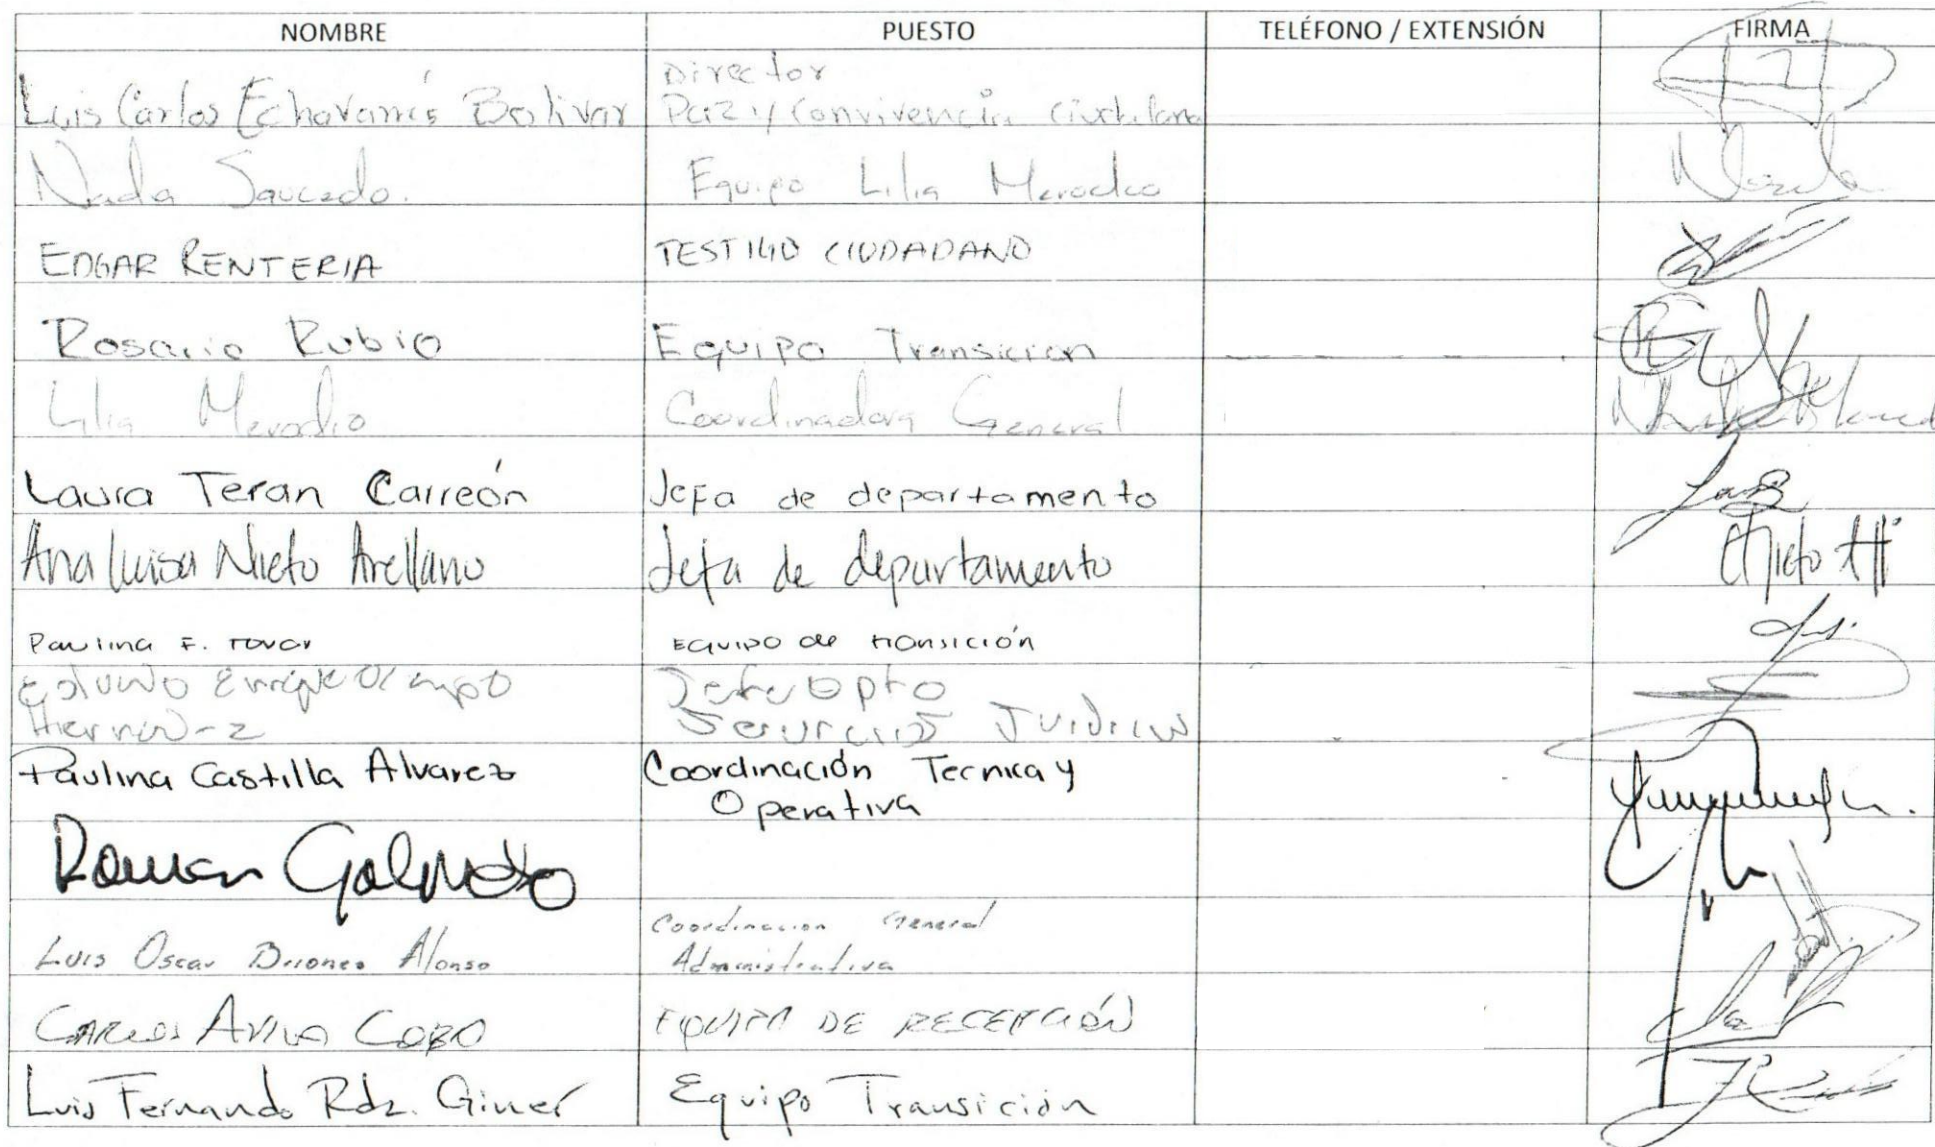 NOMBRE PUESTO TELÉFONO / EXTENSIÓN FIRMA
Director
Luis Carlos Echavarría Bolivar Paz y Convivencia Ciudadana
Saucedo. Equipo Lilia Merodio
EDGAR RENTERIA TESTIGO CIUDADANO
Rosario Rubio Equipo Transicion
Lilia Merodio Coordinadora General
Laura Teran Carreón Jefa de departamento
Ana Luisa Nieto Arellano Jefa de departamento
Paulina F. Tovar Equipo de transición
Enrique Jefe Dpto
Servicios Juridicos
Paulina Castilla Alvarez Coordinación Tecnica y
Operativa
Luis Oscar Briones Alonso Coordinacion General
Administrativa
CARLOS COBO EQUIPO DE RECEPCIÓN
Luis Fernando Rdz. Giner Equipo Transición